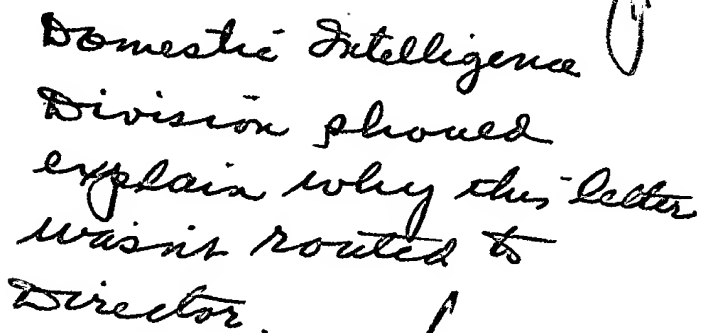 Domestic Intelligence
Division should
explain why this letter
wasn't routed to
Director.